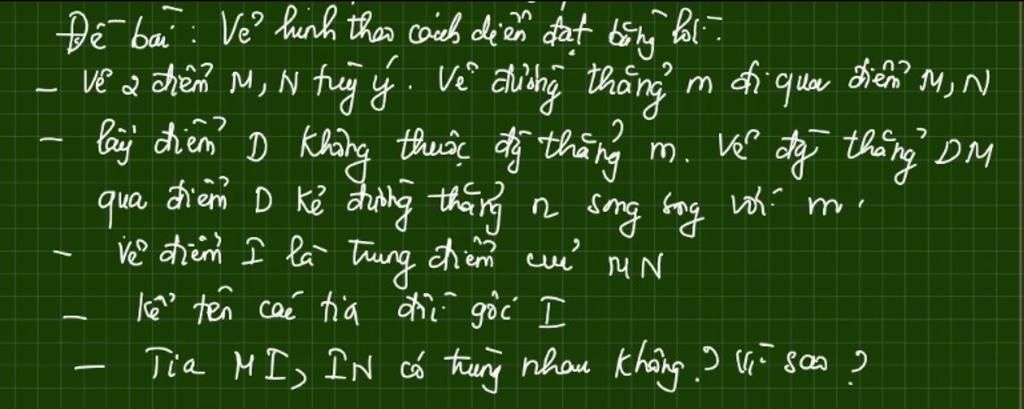 Đề bài: Vẽ hình theo cách diễn đạt bằng lời:
- Vẽ 2 điểm M, N tuỳ ý. Vẽ đường thẳng m đi qua điểm M, N
- lấy điểm D không thuộc đg thẳng m. Vẽ đg thẳng DM
qua điểm D kẻ đường thẳng n song song với m.
- Vẽ điểm I là trung điểm của MN
- Kể tên các tia đối gốc I
- Tia MI, IN có trùng nhau không? Vì sao?